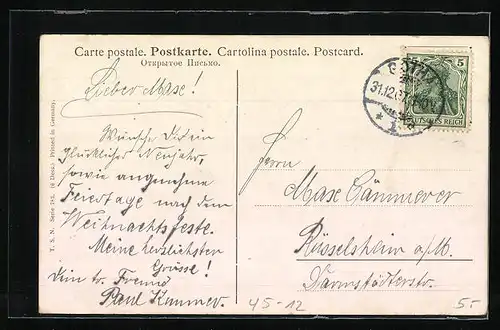 Carte postale. Postkarte. Cartolina postale. Postcard.
Открытое Письмо.
Lieber Maxe!
Wünsche Dir ein
glückliches Neujahr,
sowie angenehme
Feiertage nach dem
Weihnachtsfeste.
Meine herzlichsten
Grüsse!
Dein tr. Freund
Paul
T. S. N. Serie (6 Dess.) Printed in Germany.
5
31.12.
DEUTSCHES REICH
Herrn
Maxe Cämmerer
Rüsselsheim a/M.
Darmstädterstr.
45-12
5.-